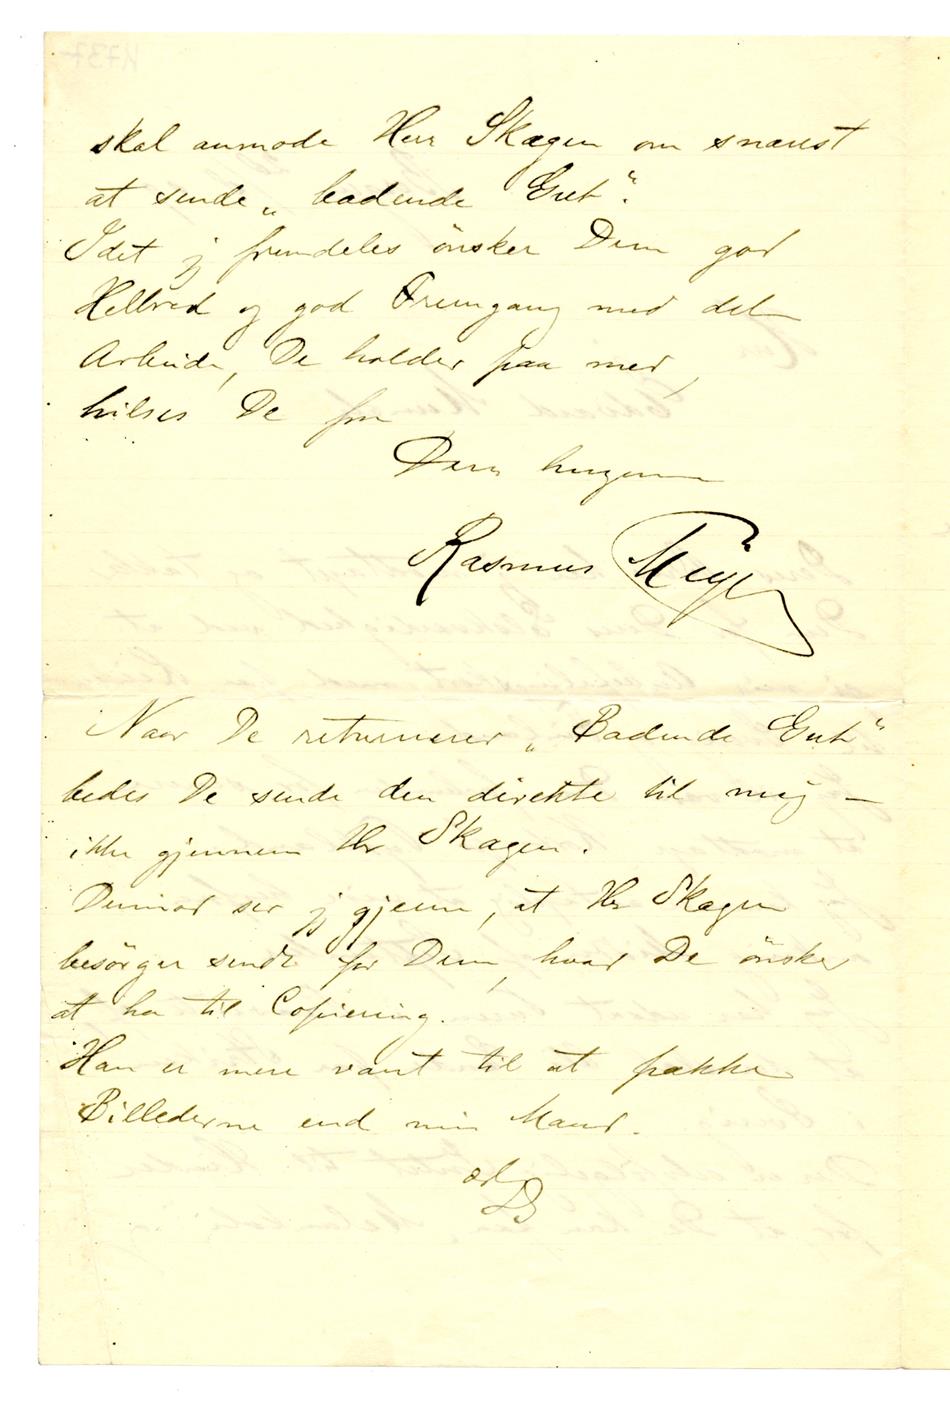 skal anmode Herr Skagen om snarest
at sende „badende Gut“.
Idet jeg fremdeles ønsker Dem god
Helbred og god Fremgang med det
Arbeide, De holder paa med,
hilses De fra
Deres hengivne
Rasmus Meyer
Naar De returnerer „Badende Gut“
bedes De sende den direkte til mig –
ikke gjennem Hr Skagen.
Derimod ser jeg gjerne, at Hr Skagen
besörger sendt for Dem, hvad De önsker
at ha til Copiering.
Han er mere vant til at pakke
Billederne end min Mand.